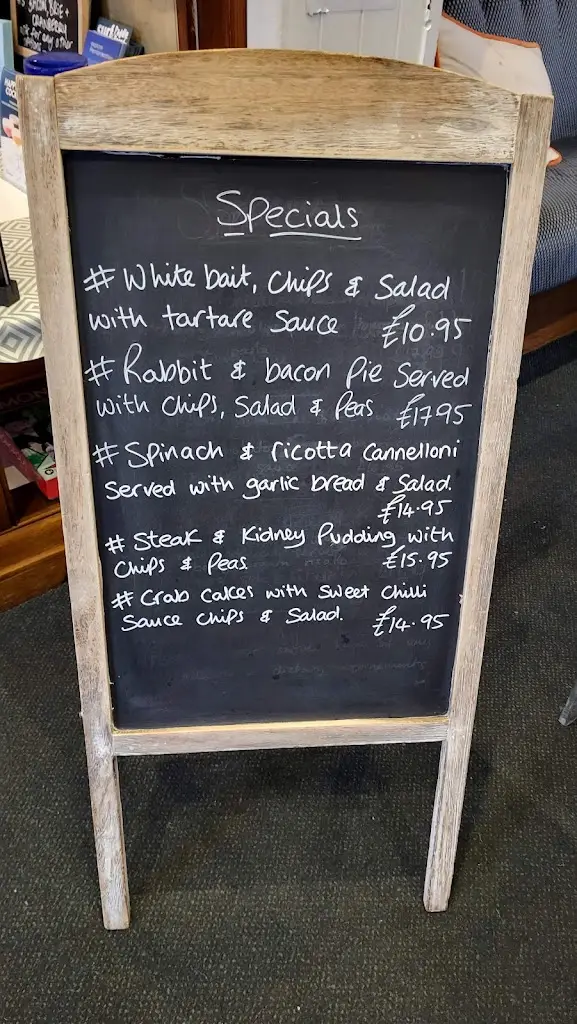 Specials
# White bait, Chips & Salad
with tartare Sauce £10.95
# Rabbit & bacon Pie Served
with Chips, Salad & Peas £17.95
# Spinach & ricotta Cannelloni
Served with garlic bread & Salad.
£14.95
# Steak & Kidney Pudding with
Chips & Peas £15.95
# Crab Cakes with Sweet Chilli
Sauce Chips & Salad. £14.95